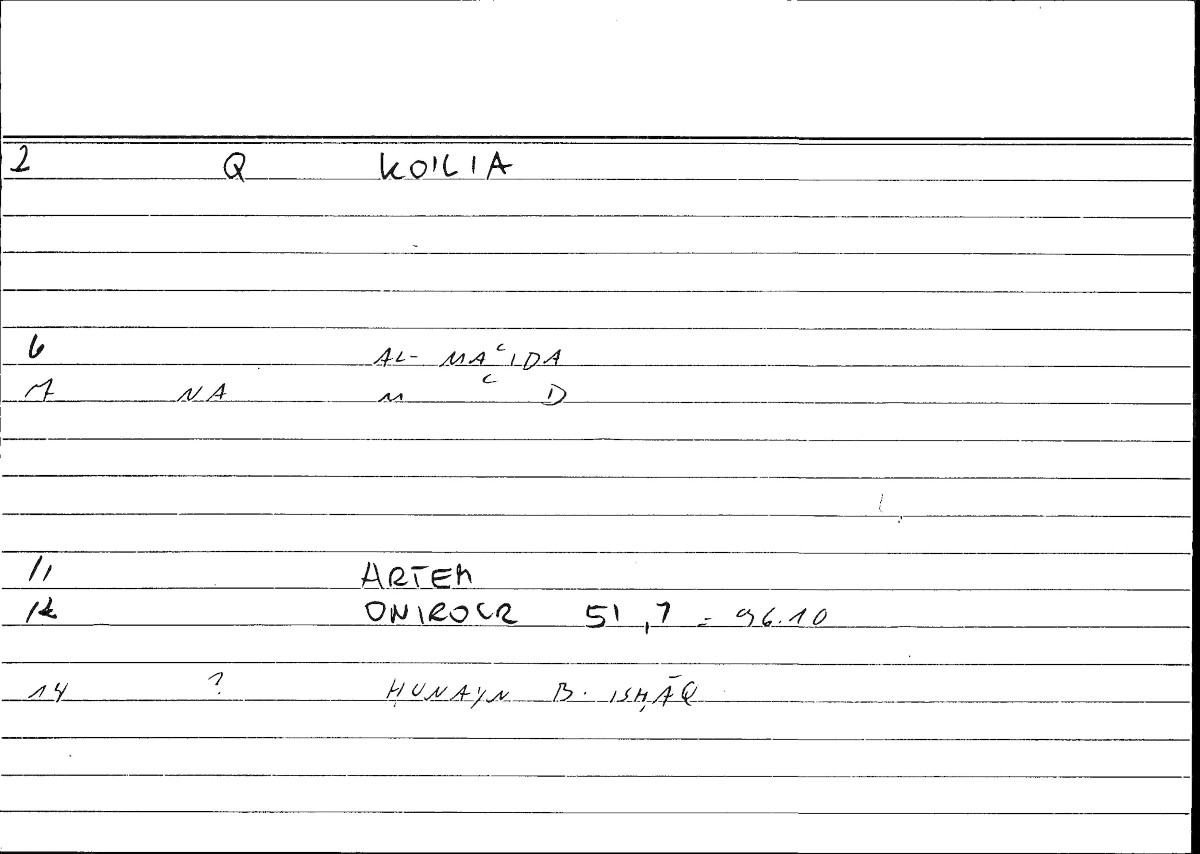 2 Q KOILIA
6 AL- MAʿIDA
7 NA M ʿ D
11 ARTEM
12 ONIROCR 51,7 = 96.10
14 ? ḤUNAYN B. ISḤĀQ